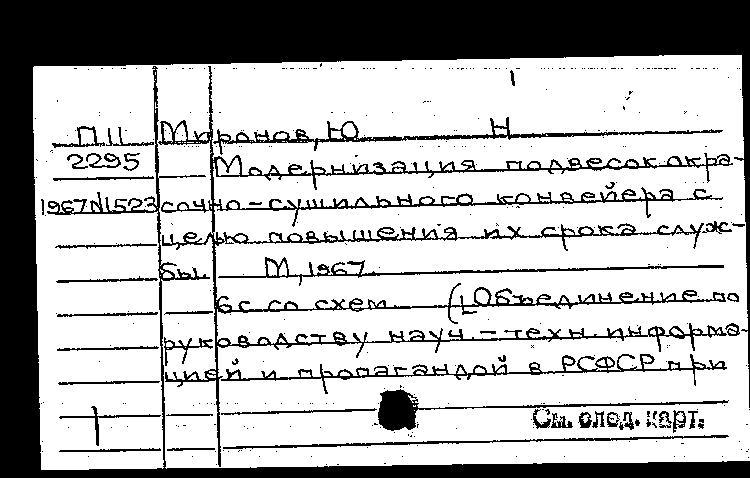 П11 Миронов, Ю Н
2295 Модернизация подвесок окра-
1967N1523 сочно-сушильного конвейера с
целью повышения их срока служ-
бы. М, 1967.
6с со схем. ([Объединение по
руководству науч.-техн. информа-
цией и пропагандой в РСФСР при
См. след. карт.